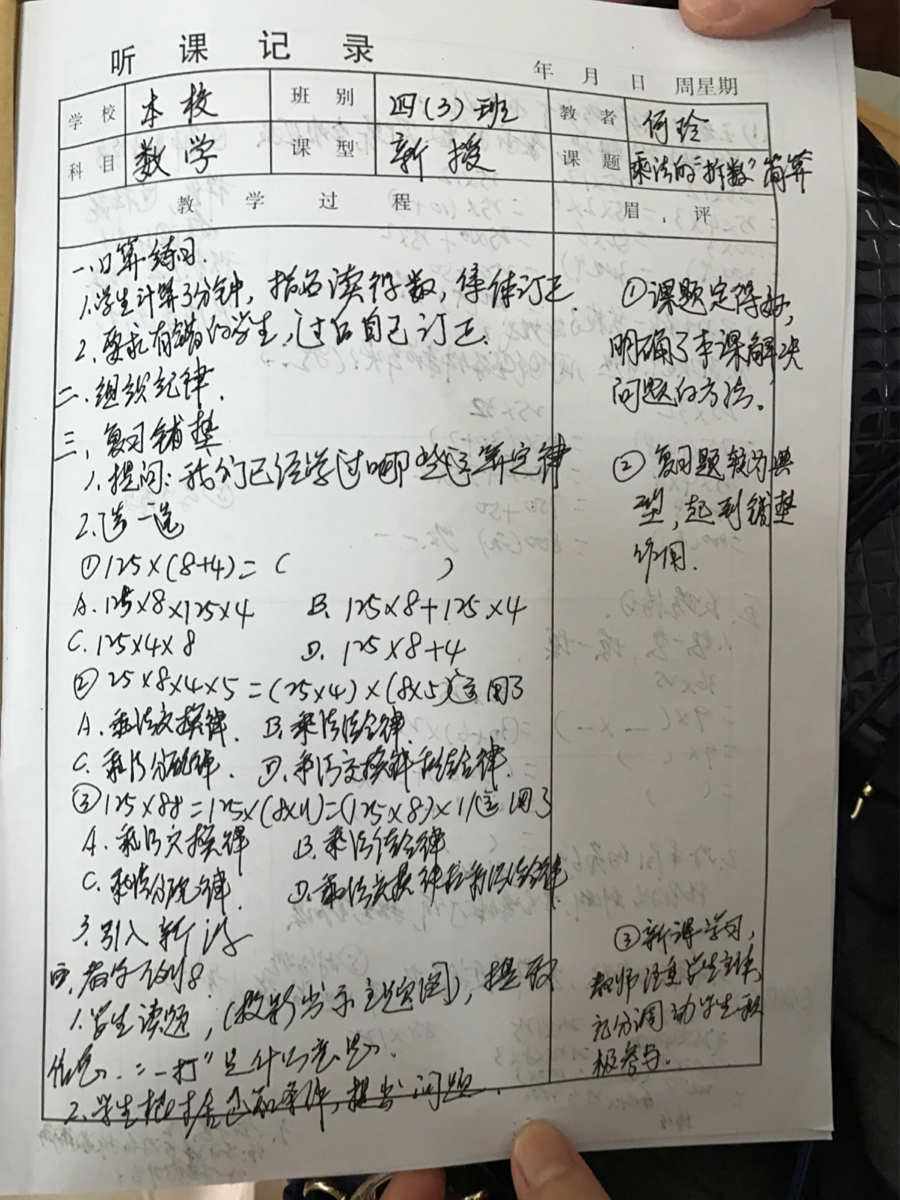 听课记录
年 月 日 周星期
学校 本校 班别 四(3)班 教者 何玲
科目 数学 课型 新授 课题 乘法的"拆数"简算
教学过程 眉评
一、口算练习.
1.学生计算3分钟, 指名读得数, 集体订正.
2.要求有错的学生, 过后自己订正.
二、组织纪律.
三、复习铺垫
1.提问:我们已经学过哪些运算定律
2.选一选
①125×(8+4)=( )
A.125×8×125×4 B.125×8+125×4
C.125×4×8 D.125×8+4
②25×8×4×5=(25×4)×(8×5)运用了
A.乘法交换律. B.乘法结合律.
C.乘法分配律. D.乘法交换律和结合律.
③125×88=125×(8×11)=(125×8)×11运用了
A.乘法交换律 B.乘法结合律
C.乘法分配律. D.乘法交换律和乘法结合律
3.引入新课
四.教学例8
1.学生读题, (教师出示主题图), 提取
信息. "一打"是什么意思.
2.学生 条件, 提出问题.
①课题定得好,
明确了本课解决
问题的方法。
②复习题较为典
型, 起到铺垫
作用.
③新课学习,
教师注重学生主体,
充分调动学生积
极参与。